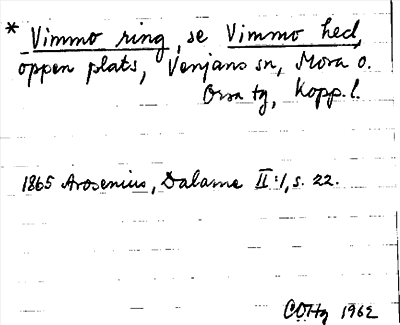 * Vimmo ring, se Vimmo hed,
öppen plats, Venjans sn, Mora o.
Orsa tg, Kopp. l.
1865 Arosenius, Dalarne II:1, s. 22.
COHg 1962